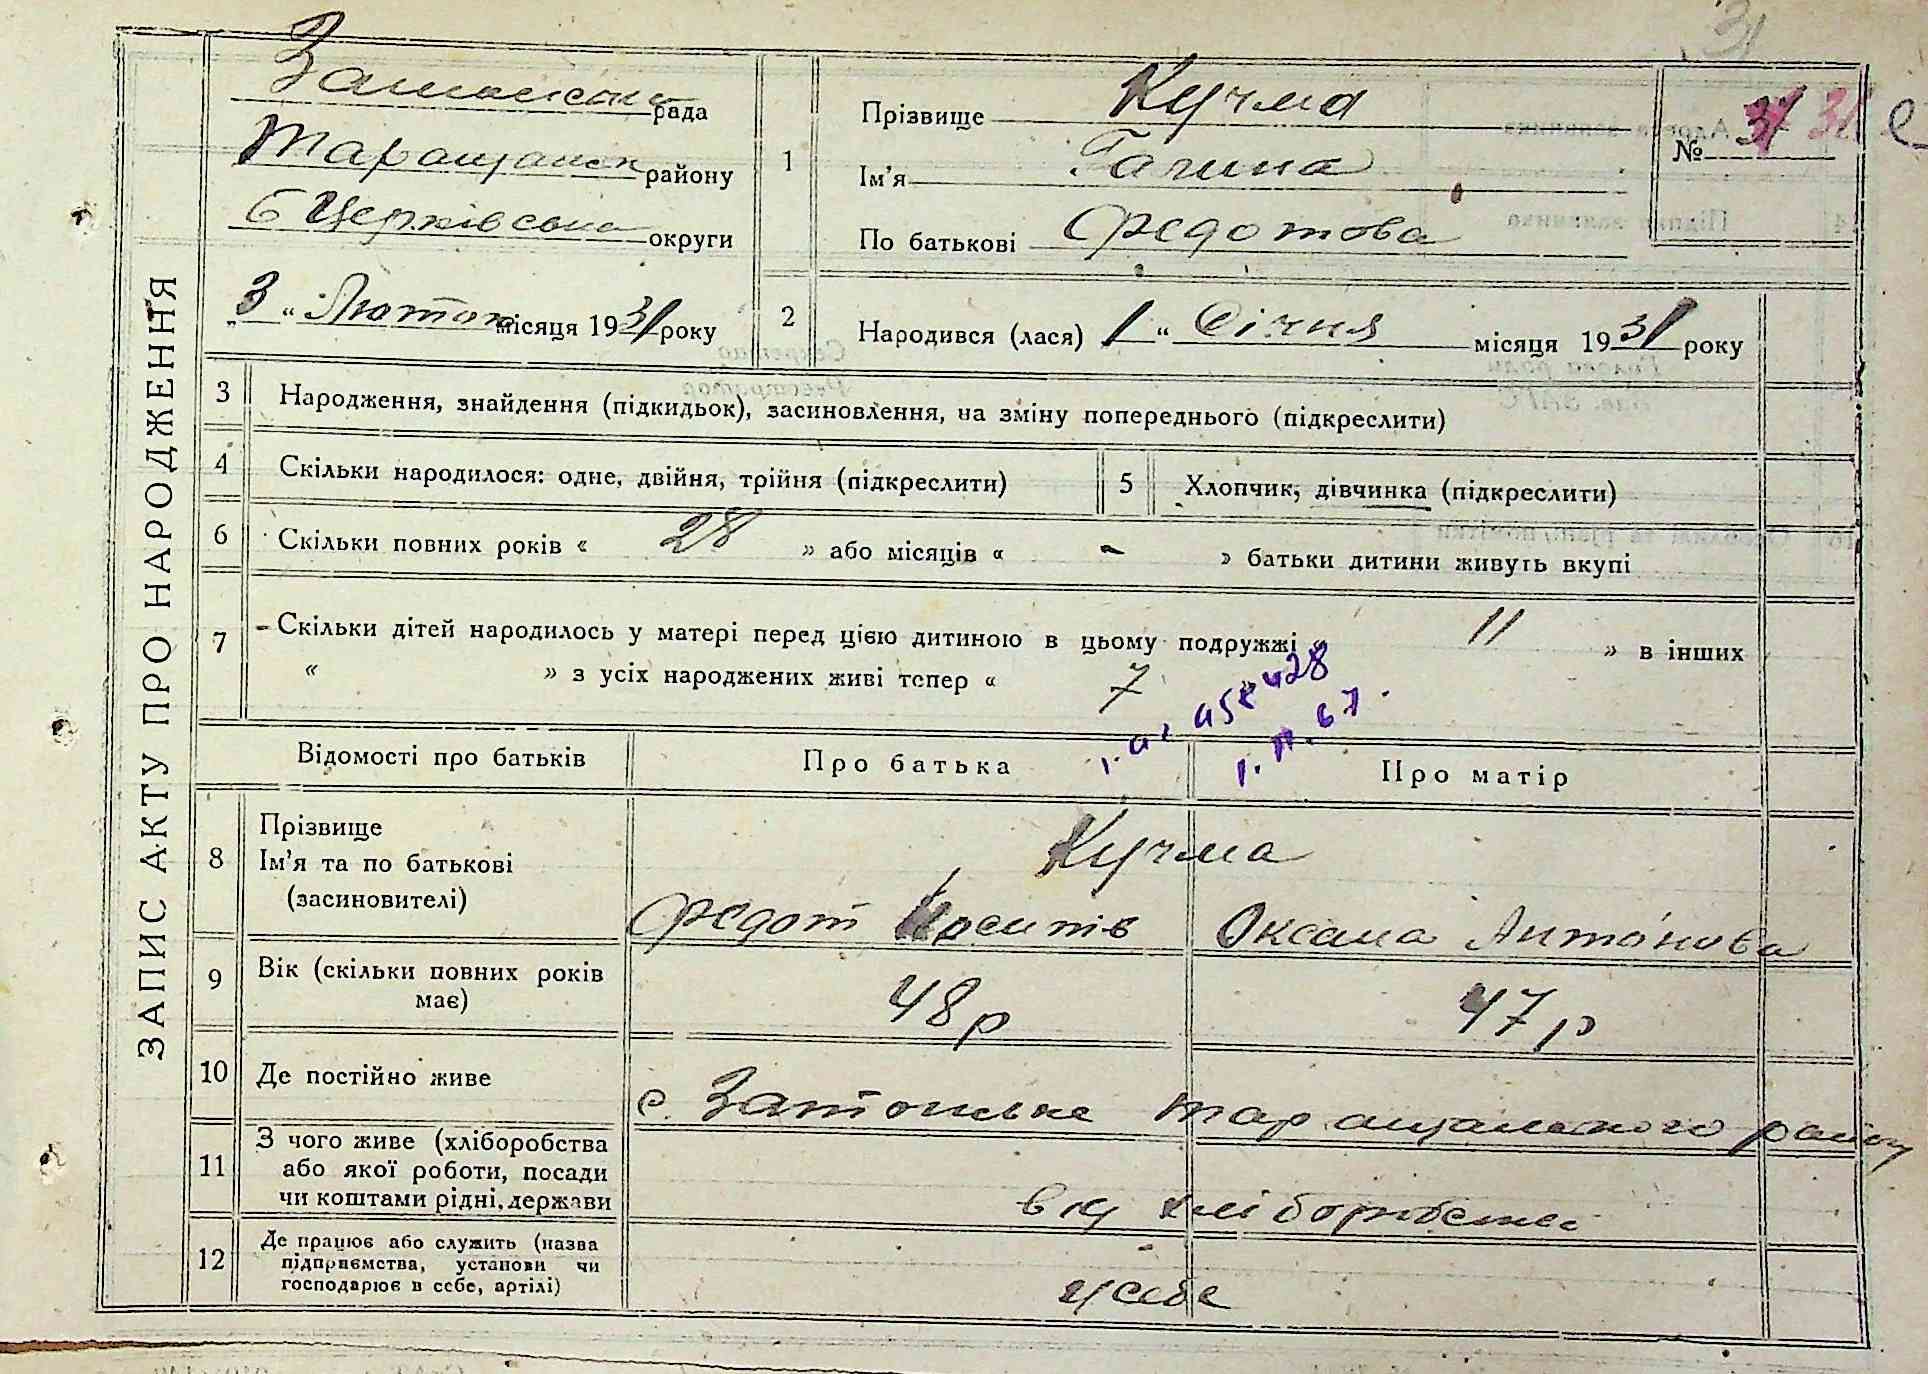 ЗАПИС АКТУ ПРО НАРОДЖЕННЯ
рада
Таращанск району
БЦерківська округи
3 " Лютого місяця 1931 року
1
Прізвище Кучма
Ім'я Галина
По батькові Федотова
№ 31
31
2
Народився (лася) 1 " Січня місяця 1931 року
3 Народження, знайдення (підкидьок), засиновлення, на зміну попереднього (підкреслити)
4 Скільки народилося: одне, двійня, трійня (підкреслити)
5 Хлопчик, дівчинка (підкреслити)
6 Скільки повних років « 28 » або місяців « - » батьки дитини живуть вкупі
7 Скільки дітей народилось у матері перед цією дитиною в цьому подружжі « 11 » в інших
« » з усіх народжених живі тепер « 7
Відомості про батьків
Про батька
Про матір
8 Прізвище
Ім'я та по батькові
(засиновителі)
Кучма
Федот Йосипів
Оксана Антонова
9 Вік (скільки повних років
має)
48 р
47 р
10 Де постійно живе
с. Затонське Таращанського району
11 З чого живе (хліборобства
або якої роботи, посади
чи коштами рідні, держави
від хліборобства
12 Де працює або служить (назва
підприємства, установи чи
господарює в себе, артілі)
у себе